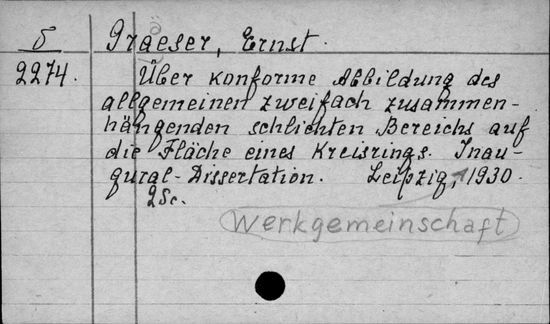 5 Graeser, Ernst.
2274. Über konforme Abbildung des
allgemeinen zweifach zusammen-
hängenden schlichten Bereichs auf
die Fläche eines Kreisrings. Inau-
gural-Dissertation. Leipzig, 1930.
Werkgemeinschaft